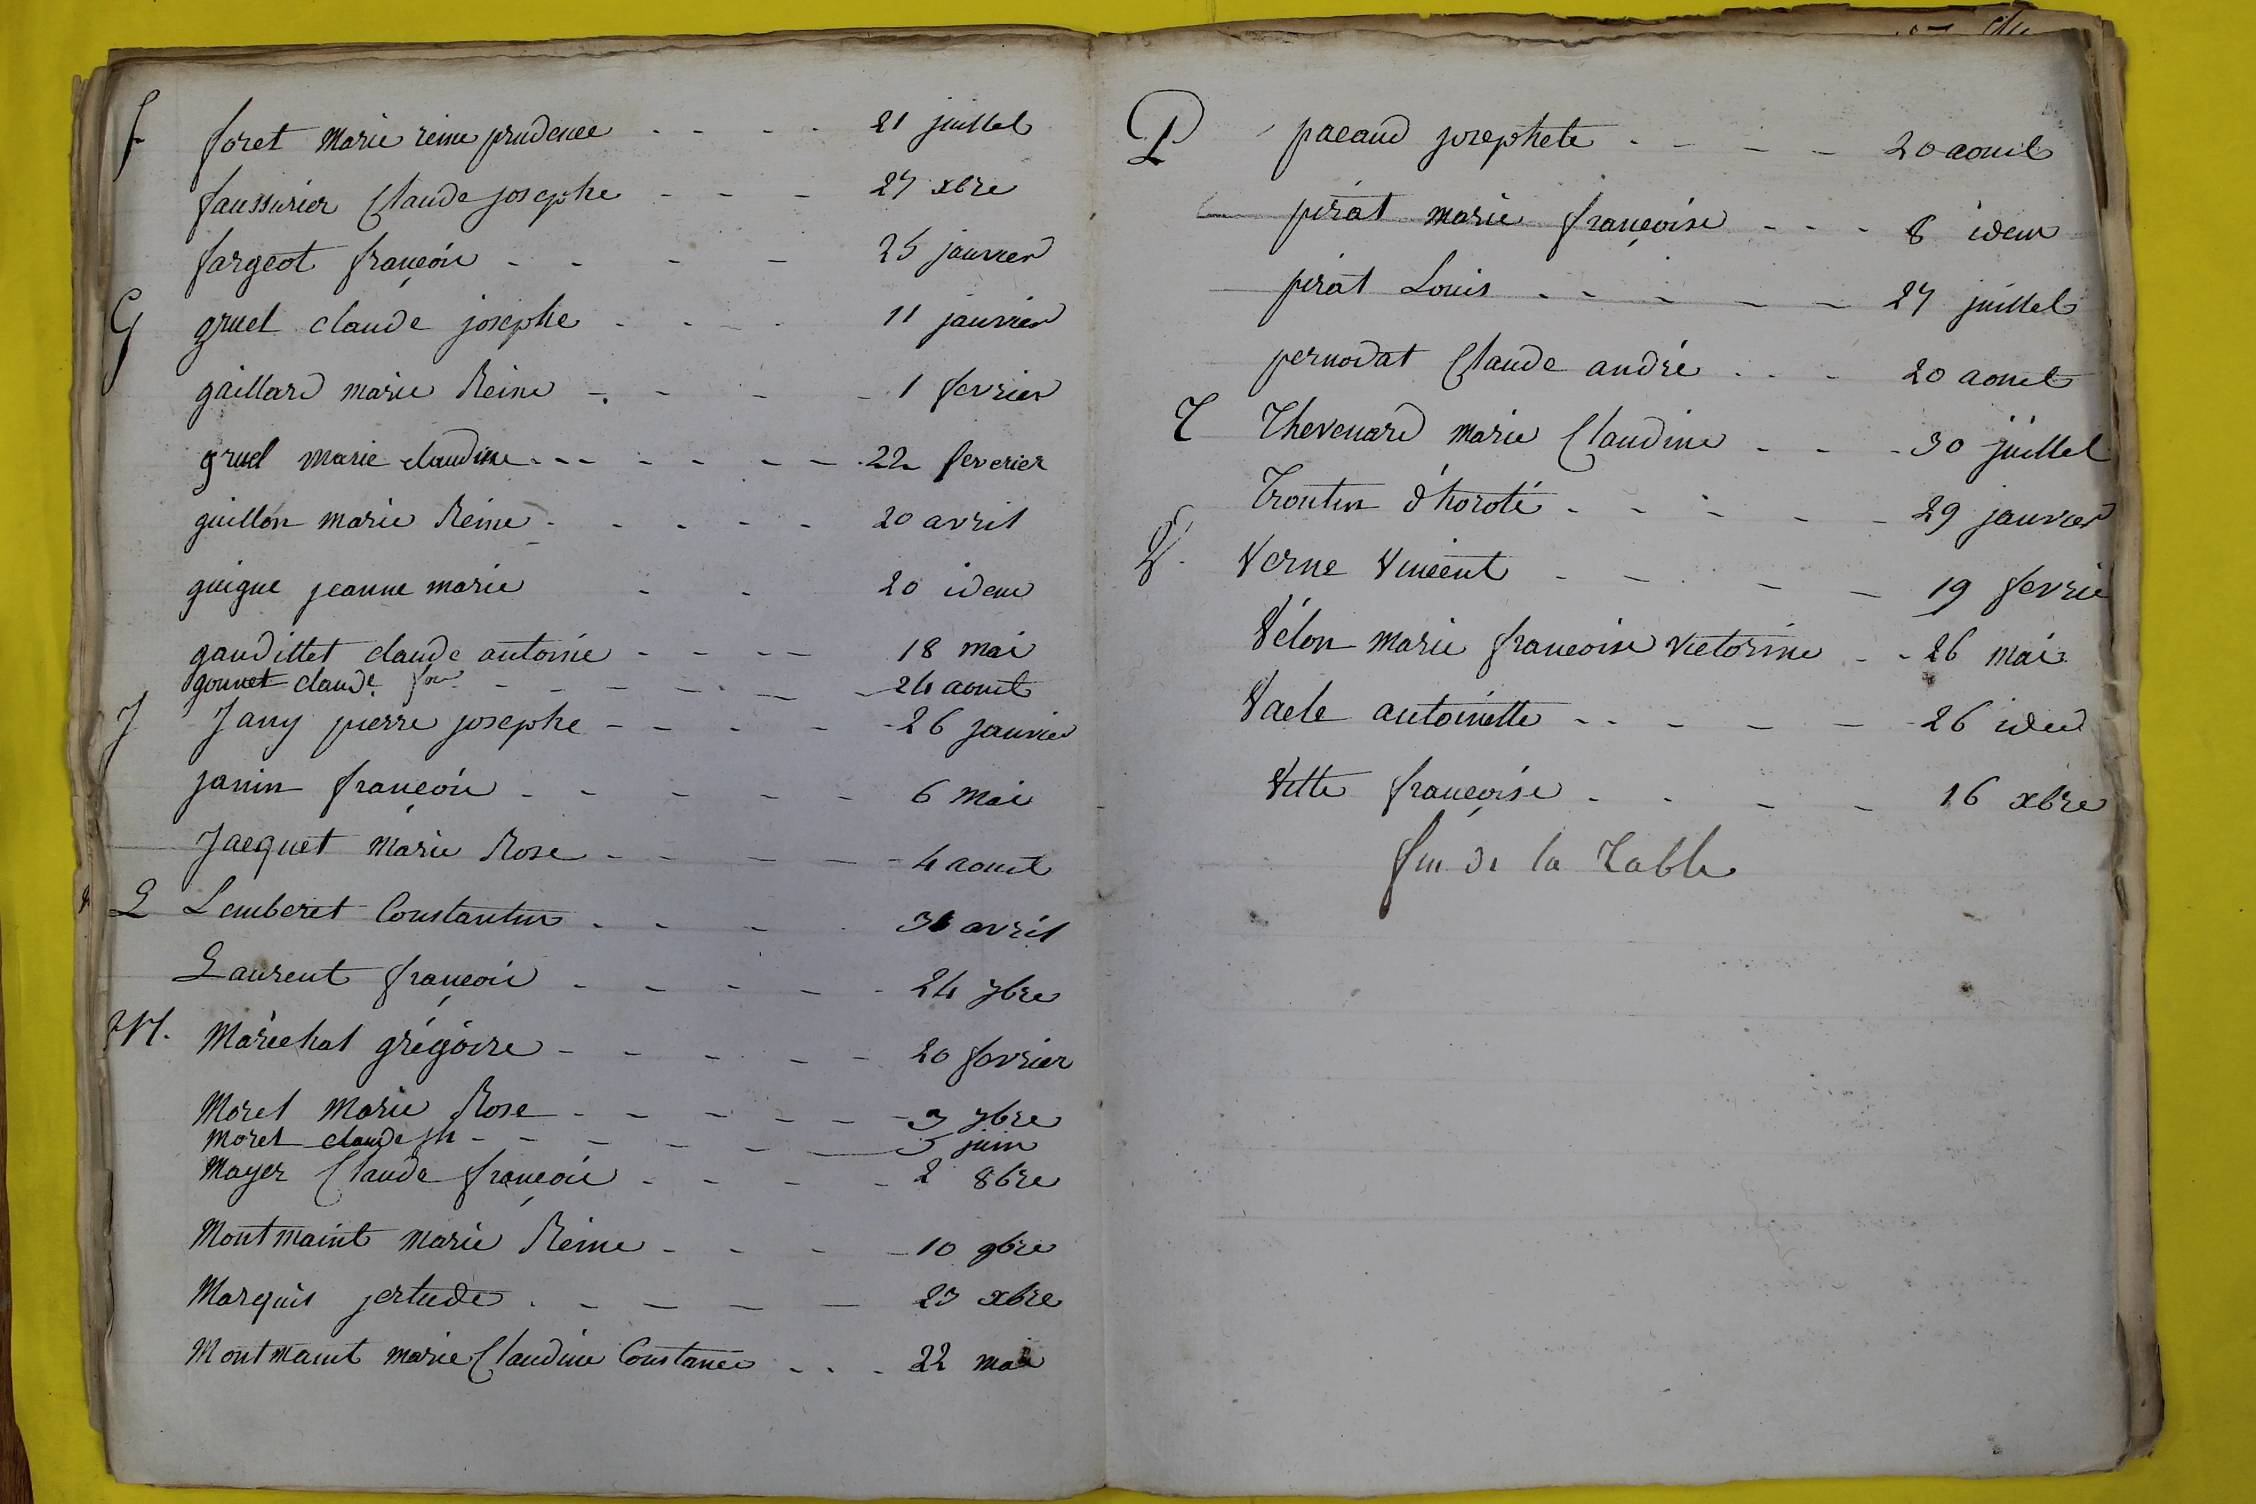 F foret marie reine prudence - - - - 21 juillet
faussurier Claude josephe - - - 27 xbre
fargeot françois - - - - 25 janvier
G gruel claude josephe - - - - 11 janvier
gaillard marie Reine - - - - 1 fevrier
gruel marie claudine - - - - - - 22 feverier
guillon marie Reine - - - - - 20 avril
guigue jeanne marie - - 20 idem
gaudillet claude antoine - - - - 18 mai
gonnet claude fois - - - - - - 24 aout
J Jany pierre josephe - - - - - 26 janvier
janin françois - - - - - 6 mai
Jacquet marie Rose - - - - - 4 aout
L Lemberet Constantin - - - - 30 avril
Laurent françois - - - - - 24 7bre
M. Maréchal grégoire - - - - - 20 fevrier
Morel marie Rose - - - - - 3 7bre
morel claude jh - - - - - - 5 juin
Mayer Claude françois - - - - 2 8bre
Montmaint marie Reine - - - - 10 9bre
Marquis jertude - - - - - 23 xbre
Montmaint marie Claudine Constance - - - 22 mai
P pacaud josephete - - - - 20 aout
pirat marie françoise - - - 8 idem
pirat Louis - - - - - 27 juillet
pernodat Claude andré - - - 20 aout
T Thevenard marie Claudine - - - 30 juillet
Troutin d'horoté - - - - - 29 janvier
V. Verne Vincent - - - - - 19 fevrie
Vélon marie francoise victorine - - 26 mai
Vacle antoinette - - - - - 26 idem
Vitte françoise - - - - 16 xbre
fin de la Table